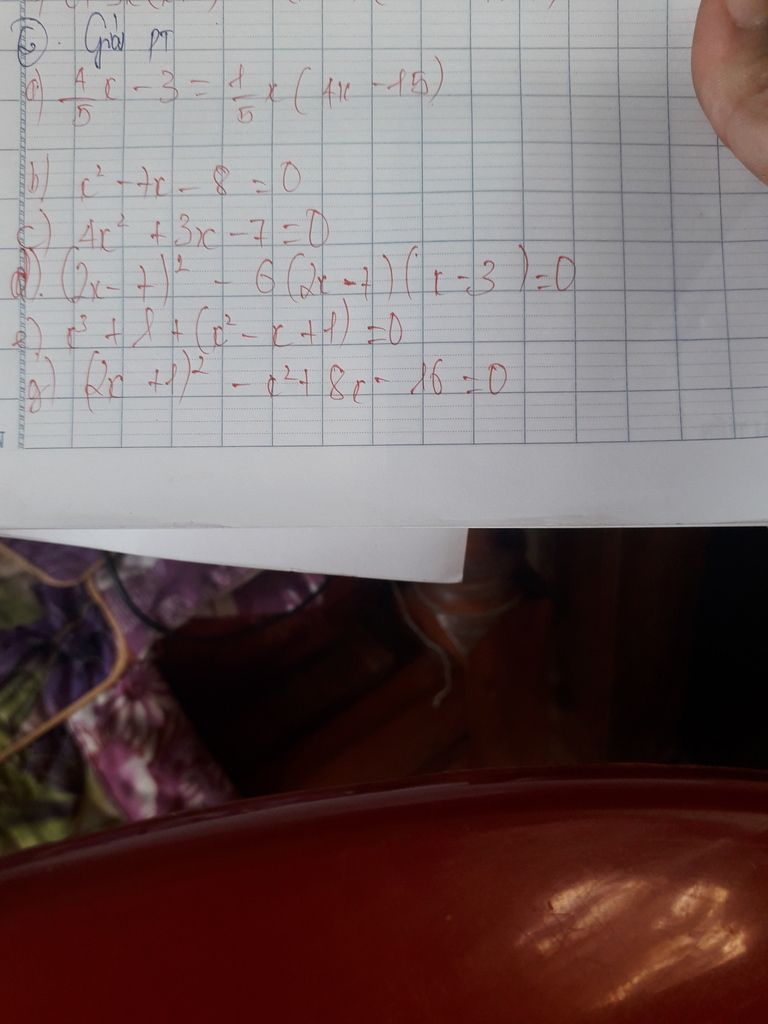 6. Giải PT
a) 4/5 x - 3 = 1/5 x (4x - 15)
b) x² - 7x - 8 = 0
c) 4x² + 3x - 7 = 0
d). (2x - 7)² - 6(2x - 7)(x - 3) = 0
e) x³ + 1 + (x² - x + 1) = 0
g) (2x + 1)² - x² + 8x - 16 = 0